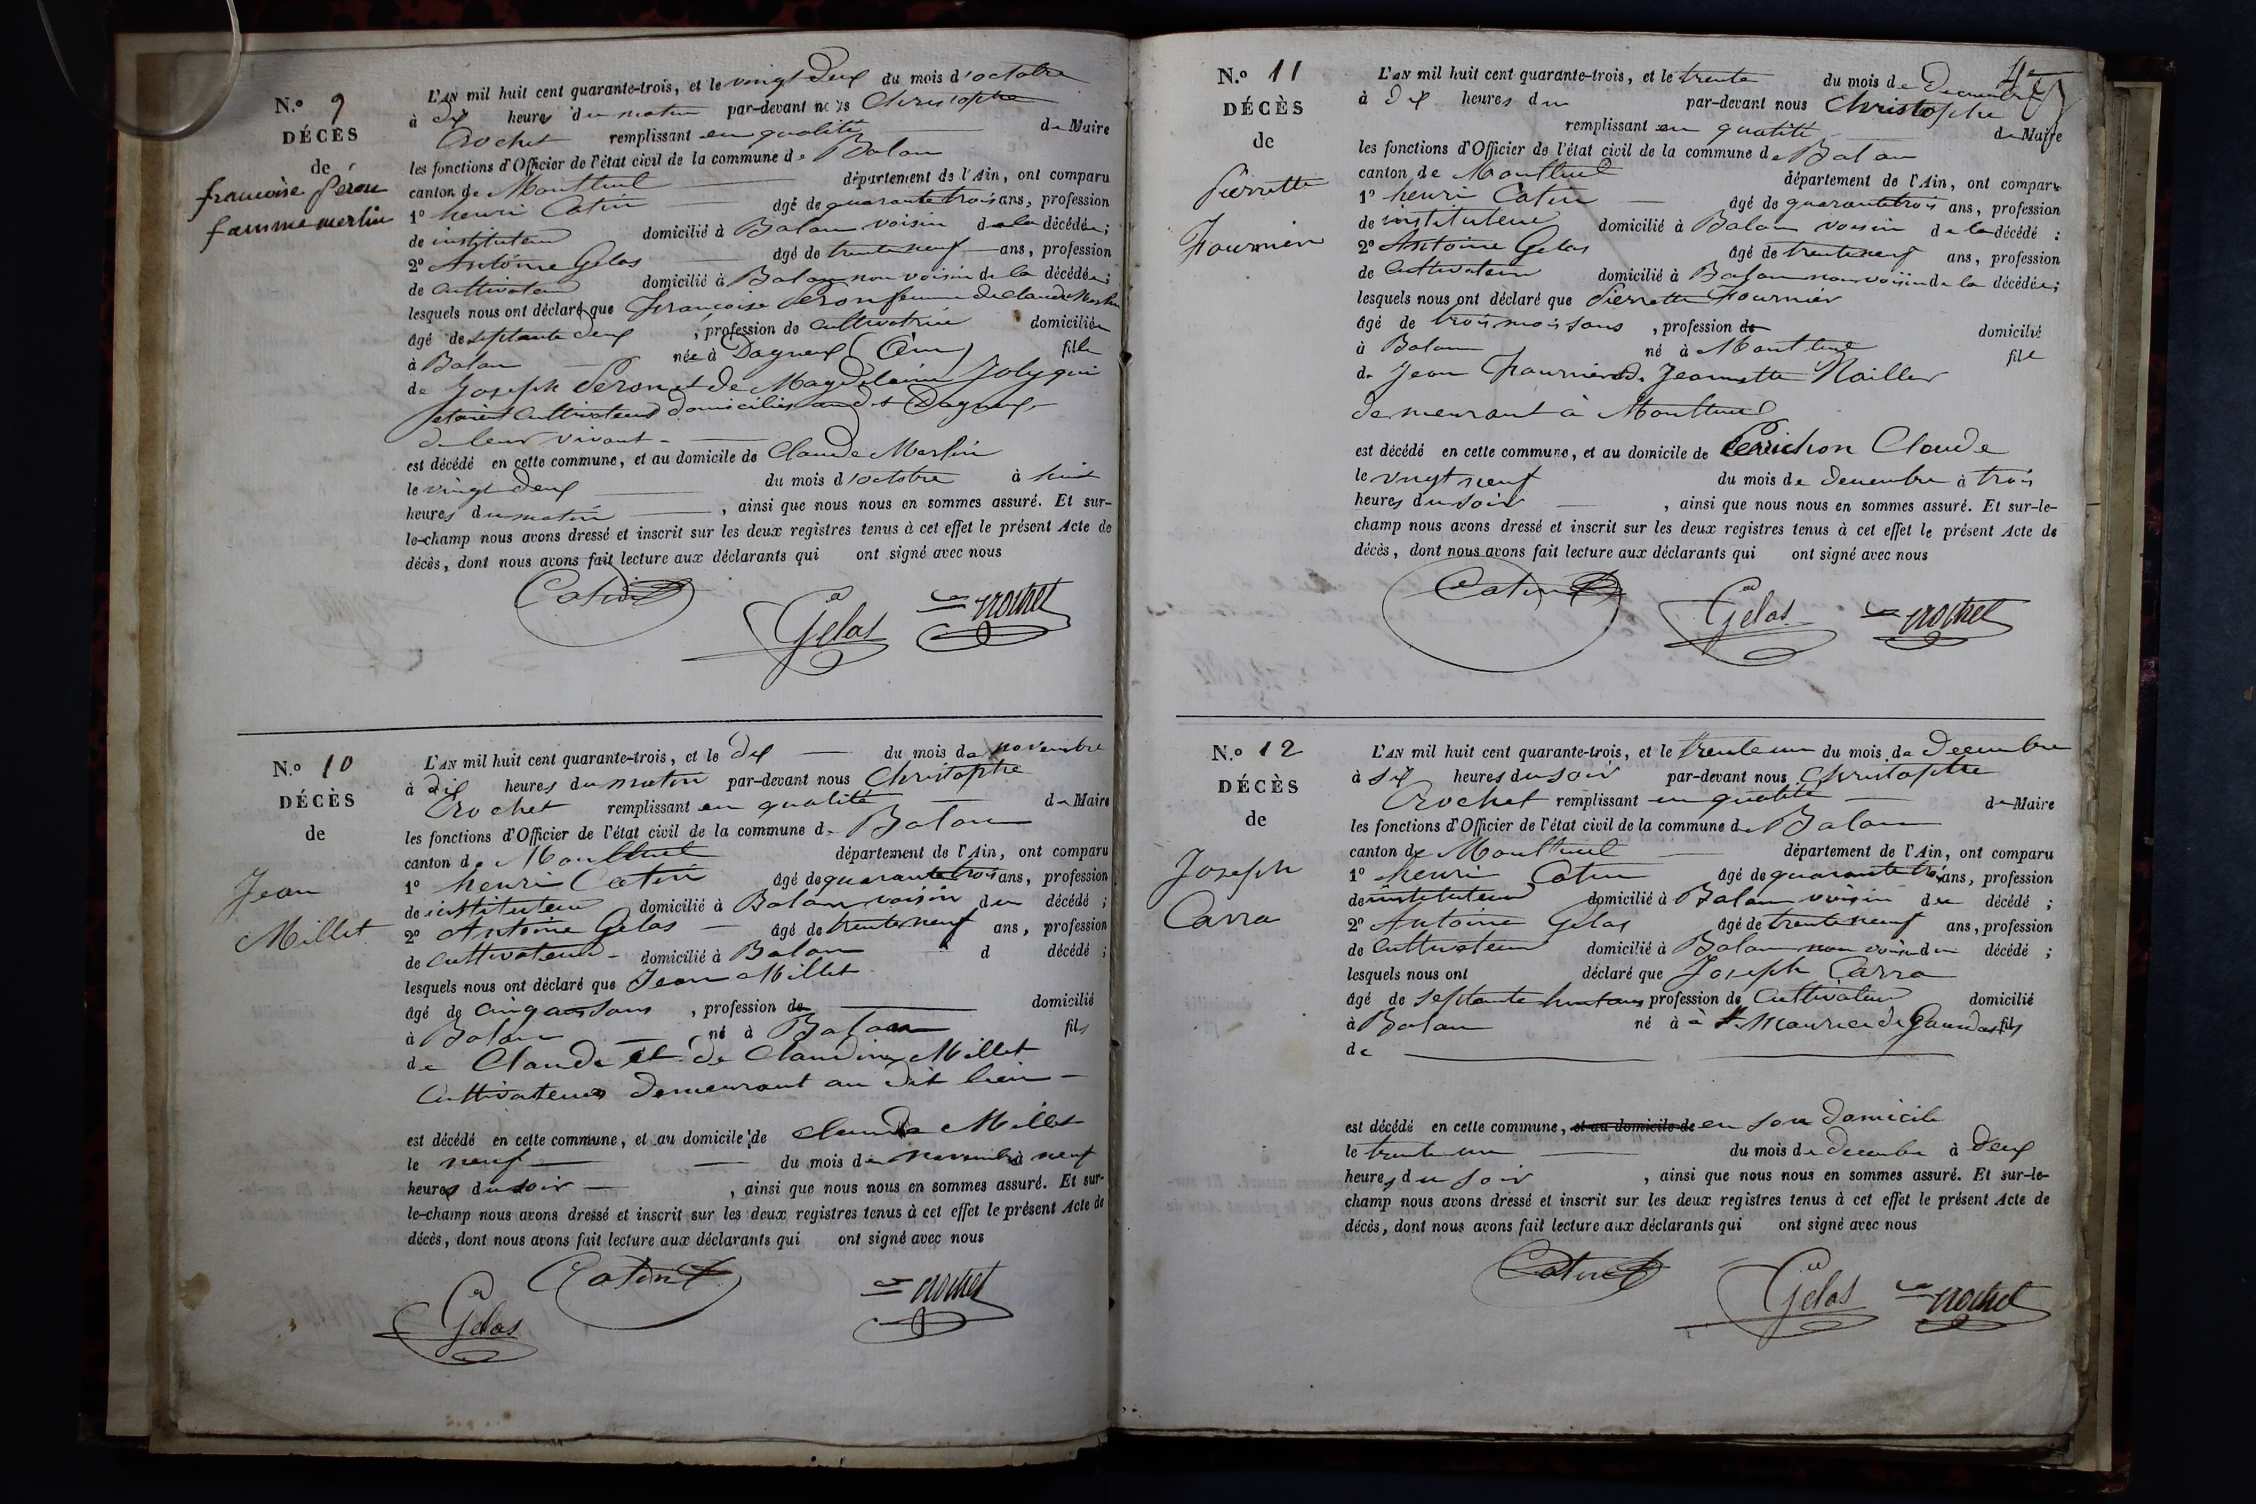 N.º 9
DÉCÈS
de
francoise péron
famme merlin
L'AN mil huit cent quarante-trois, et le vingt deux du mois d'octobre
à dix heures du matin par-devant nous Christophe
Crochet remplissant en qualité de Maire
les fonctions d'Officier de l'état civil de la commune de Balan
canton de Montluel département de l'Ain, ont comparu
1º henri Catin âgé de quarante trois ans, profession
de instituteur domicilié à Balan voisin de la décédée;
2º Antoine Gelas âgé de trente neuf ans, profession
de cultivateur domicilié à Balan non voisin de la décédée;
lesquels nous ont déclaré que Francoise Peron femme de Claude Merlin
âgé de septante deux, profession de cultivatrice domiciliée
à Balan née à Dagneux (Ain) fille
de Joseph Peron et de Magdelaine Joly qui
etaient Cultivateurs domiciliés au dit Dagneux
de leur vivant
est décédé en cette commune, et au domicile de Claude Merlin
le vingt deux du mois d'octobre à huit
heures du matin, ainsi que nous nous en sommes assuré. Et sur-
le-champ nous avons dressé et inscrit sur les deux registres tenus à cet effet le présent Acte de
décès, dont nous avons fait lecture aux déclarants qui ont signé avec nous
Catin
Gelas
Crochet
N.º 10
DÉCÈS
de
Jean
Millet
L'AN mil huit cent quarante-trois, et le dix du mois de novembre
à dix heures du matin par-devant nous Christophe
Crochet remplissant en qualité de Maire
les fonctions d'Officier de l'état civil de la commune de Balan
canton de Montluel département de l'Ain, ont comparu
1º henri Catin âgé de quarante trois ans, profession
de instituteur domicilié à Balan voisin du décédé;
2º Antoine Gelas âgé de trente neuf ans, profession
de cultivateur domicilié à Balan d décédé;
lesquels nous ont déclaré que Jean Millet
âgé de cinq ans, profession de domicilié
à Balan né à Balan fils
de Claude et de Claudine Millet
Cultivateurs demeurant au dit lieu
est décédé en cette commune, et au domicile de Claude Millet
le neuf du mois de novembre à neuf
heures du soir, ainsi que nous nous en sommes assuré. Et sur-
le-champ nous avons dressé et inscrit sur les deux registres tenus à cet effet le présent Acte de
décès, dont nous avons fait lecture aux déclarants qui ont signé avec nous
Catin
Gelas
Crochet
N.º 11
DÉCÈS
de
Pierrette
Fournier
L'AN mil huit cent quarante-trois, et le trente du mois de Decembre
à dix heures du par-devant nous Christophe
remplissant en qualité de Maire
les fonctions d'Officier de l'état civil de la commune de Balan
canton de Montluel département de l'Ain, ont comparu
1º henri Catin âgé de quarante trois ans, profession
de instituteur domicilié à Balan voisin de la décédé;
2º Antoine Gelas âgé de trente neuf ans, profession
de Cultivateur domicilié à Balan non voisin de la décédée;
lesquels nous ont déclaré que Pierrette Fournier
âgé de trois mois, profession de domicilié
à Balan né à Montluel fille
de Jean Fournier et de Jeannette Nailler
demeurant à Montluel
est décédé en cette commune, et au domicile de Perrichon Claude
le vingt neuf du mois de decembre à trois
heures du soir, ainsi que nous nous en sommes assuré. Et sur-le-
champ nous avons dressé et inscrit sur les deux registres tenus à cet effet le présent Acte de
décès, dont nous avons fait lecture aux déclarants qui ont signé avec nous
Catin
Gelas
Crochet
N.º 12
DÉCÈS
de
Joseph
Carra
L'AN mil huit cent quarante-trois, et le trente un du mois de Decembre
à six heures du soir par-devant nous Christophe
Crochet remplissant en qualité de Maire
les fonctions d'Officier de l'état civil de la commune de Balan
canton de Montluel département de l'Ain, ont comparu
1º henri Catin âgé de quarante trois ans, profession
de instituteur domicilié à Balan voisin du décédé;
2º Antoine Gelas âgé de trente neuf ans, profession
de Cultivateur domicilié à Balan non voisin du décédé;
lesquels nous ont déclaré que Joseph Carra
âgé de septante huit ans profession de Cultivateur domicilié
à Balan né à à St Maurice de Gourdans fils
de
est décédé en cette commune, et au domicile de en son domicile
le trente un du mois de decembre à deux
heures du soir, ainsi que nous nous en sommes assuré. Et sur-le-
champ nous avons dressé et inscrit sur les deux registres tenus à cet effet le présent Acte de
décès, dont nous avons fait lecture aux déclarants qui ont signé avec nous
Catin
Gelas
Crochet